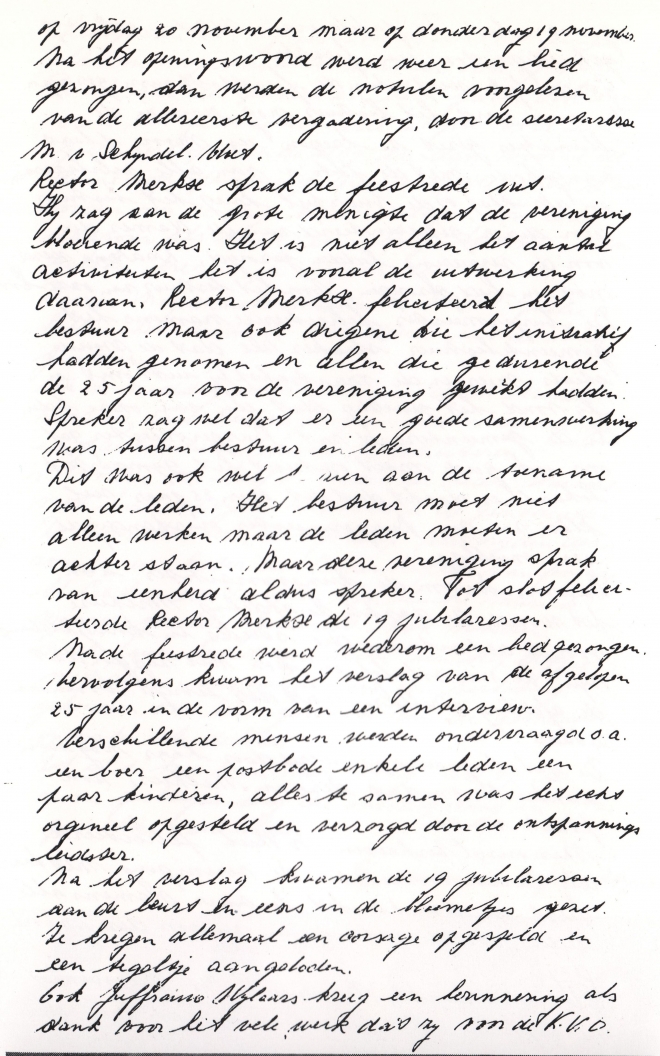 op vrijdag 20 november maar op donderdag 19 november.
Na het openingswoord werd weer een lied
gezongen, dan werden de notulen voorgelezen
van de allereerste vergadering, door de secretaresse
M. v Schyndel.
Rector Merkse sprak de feestrede uit.
Hij zag aan de grote menigte dat de vereniging
bloeiende was. Het is niet alleen het aantal
activiteiten het is vooral de uitwerking
daarvan. Rector Merkx feliciteerd het
bestuur maar ook diegene die het initiatief
hadden genomen en allen die gedurende
de 25 jaar voor de vereniging gewerkt hadden.
Spreker zag wel dat er een goede samenwerking
was tussen bestuur en leden.
Dit was ook wel aan de toename
van de leden. Het bestuur moet niet
alleen werken maar de leden moeten er
achter staan. Maar deze vereniging sprak
van eenheid aldus spreker. Tot slot felici-
teerde Rector Merkse de 19 jubilaressen.
Na de feestrede werd wederom een lied gezongen.
vervolgens kwam het verslag van de afgelopen
25 jaar in de vorm van een interview.
Verschillende mensen werden ondervraagd o.a.
een boer een postbode enkele leden een
paar kinderen, alles te samen was het echt
orgineel opgesteld en verzorgd door de ontspannings
leidster.
Na het verslag kwamen de 19 jubilaressen
aan de beurt en eens in de bloemetjes gezet.
Ze kregen allemaal een corsage opgespeld en
een tegeltje aangeboden.
Ook Juffrouw kreeg een herinnering als
dank voor het vele werk dat zij voor de K.V.O.